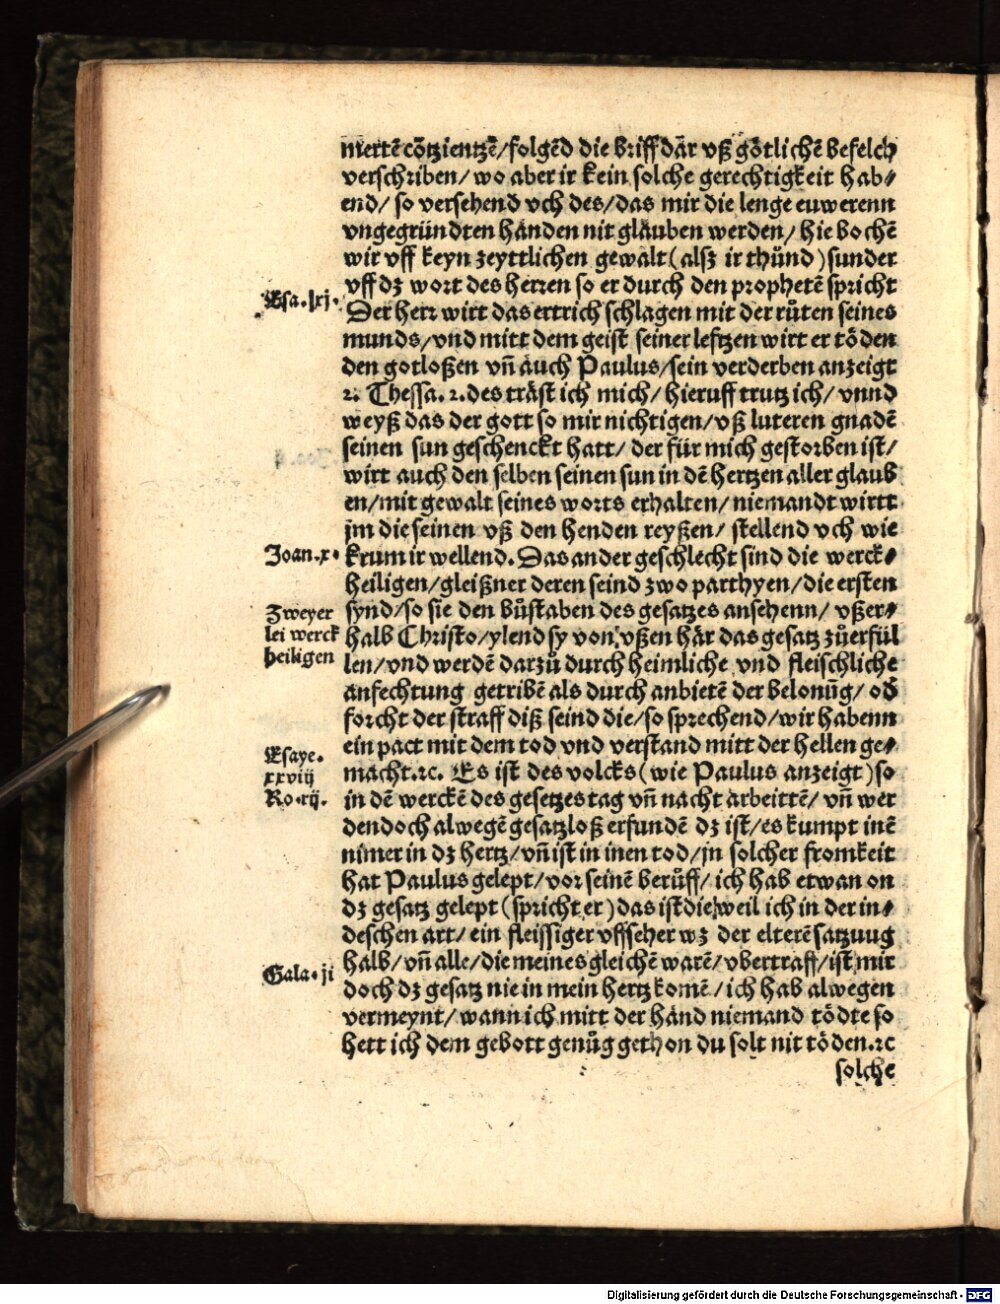 mertē cõtzientzē/folgēd die briff där vß götlichē befelch
verschriben/ wo aber ir kein solche gerechtigkeit hab⸗
end/ so versehend vch des/das mir die lenge euwerenn
vngegründten händen nit glauben werden/ hie bochē
wir vff keyn zeyttlichen gewalt (alsz ir thünd) sunder
vff dz wort des herren so er durch den prophetē spricht
Esa.lxj.
Der herr wirt das ertrich schlagen mit der růten seines
munds/vnd mitt dem geist seiner leftzen wirt er töden
den gotloßen vñ auch Paulus/sein verderben anzeigt
2. Thessa. 2. des träst ich mich/ hieruff trutz ich/ vnnd
weyß das der gott so mir nichtigen/ vß luteren gnadē
seinen sun geschenckt hatt/ der für mich gestorben ist/
wirt auch den selben seinen sun in dē hertzen aller glaub
en/mit gewalt seines worts erhalten/ niemandt wirtt
jm die seinen vß den henden reyßen/ stellend vch wie
Joan.x.
krum ir wellend. Das ander geschlecht sind die werck⸗
heiligen/gleißner deren seind zwo parthyen/die ersten
Zweyer
lei werck
heiligen
synd/so sie den bůstaben des gesatzes ansehenn/ vßer⸗
halb Christo/ylend sy von vßen här das gesatz zůerfül
len/vnd werdē darzů durch heimliche vnd fleischliche
anfechtung getribē als durch anbietē der belonūg/ od̄
forcht der straff diß seind die/so sprechend/wir habenn
Esaye.
xxviij
Ro.xij.
ein pact mit dem tod vnd verstand mitt der hellen ge⸗
macht.⁊c. Es ist des volcks (wie Paulus anzeigt) so
in dē werckē des gesetzes tag vñ nacht arbeittē/ vñ wer
den doch alwegē gesatzloß erfundē dz ist/es kumpt inē
nimer in dz hertz/vñ ist in inen tod/jn solcher fromkeit
hat Paulus gelept/vor seinē berůff/ ich hab etwan on
dz gesatz gelept (spricht er) das ist die weil ich in der in⸗
deschen art/ ein fleissiger vffseher wz der elterē satzuug
Gala.ji
halb/vñ alle/die meines gleichē warē/vbertraff/ist mir
doch dz gesatz nie in mein hertz komē/ich hab alwegen
vermeynt/ wann ich mitt der händ niemand tödte so
hett ich dem gebott genůg gethon du solt nit töden.⁊c
solche
Digitalisierung gefördert durch die Deutsche Forschungsgemeinschaft - DFG